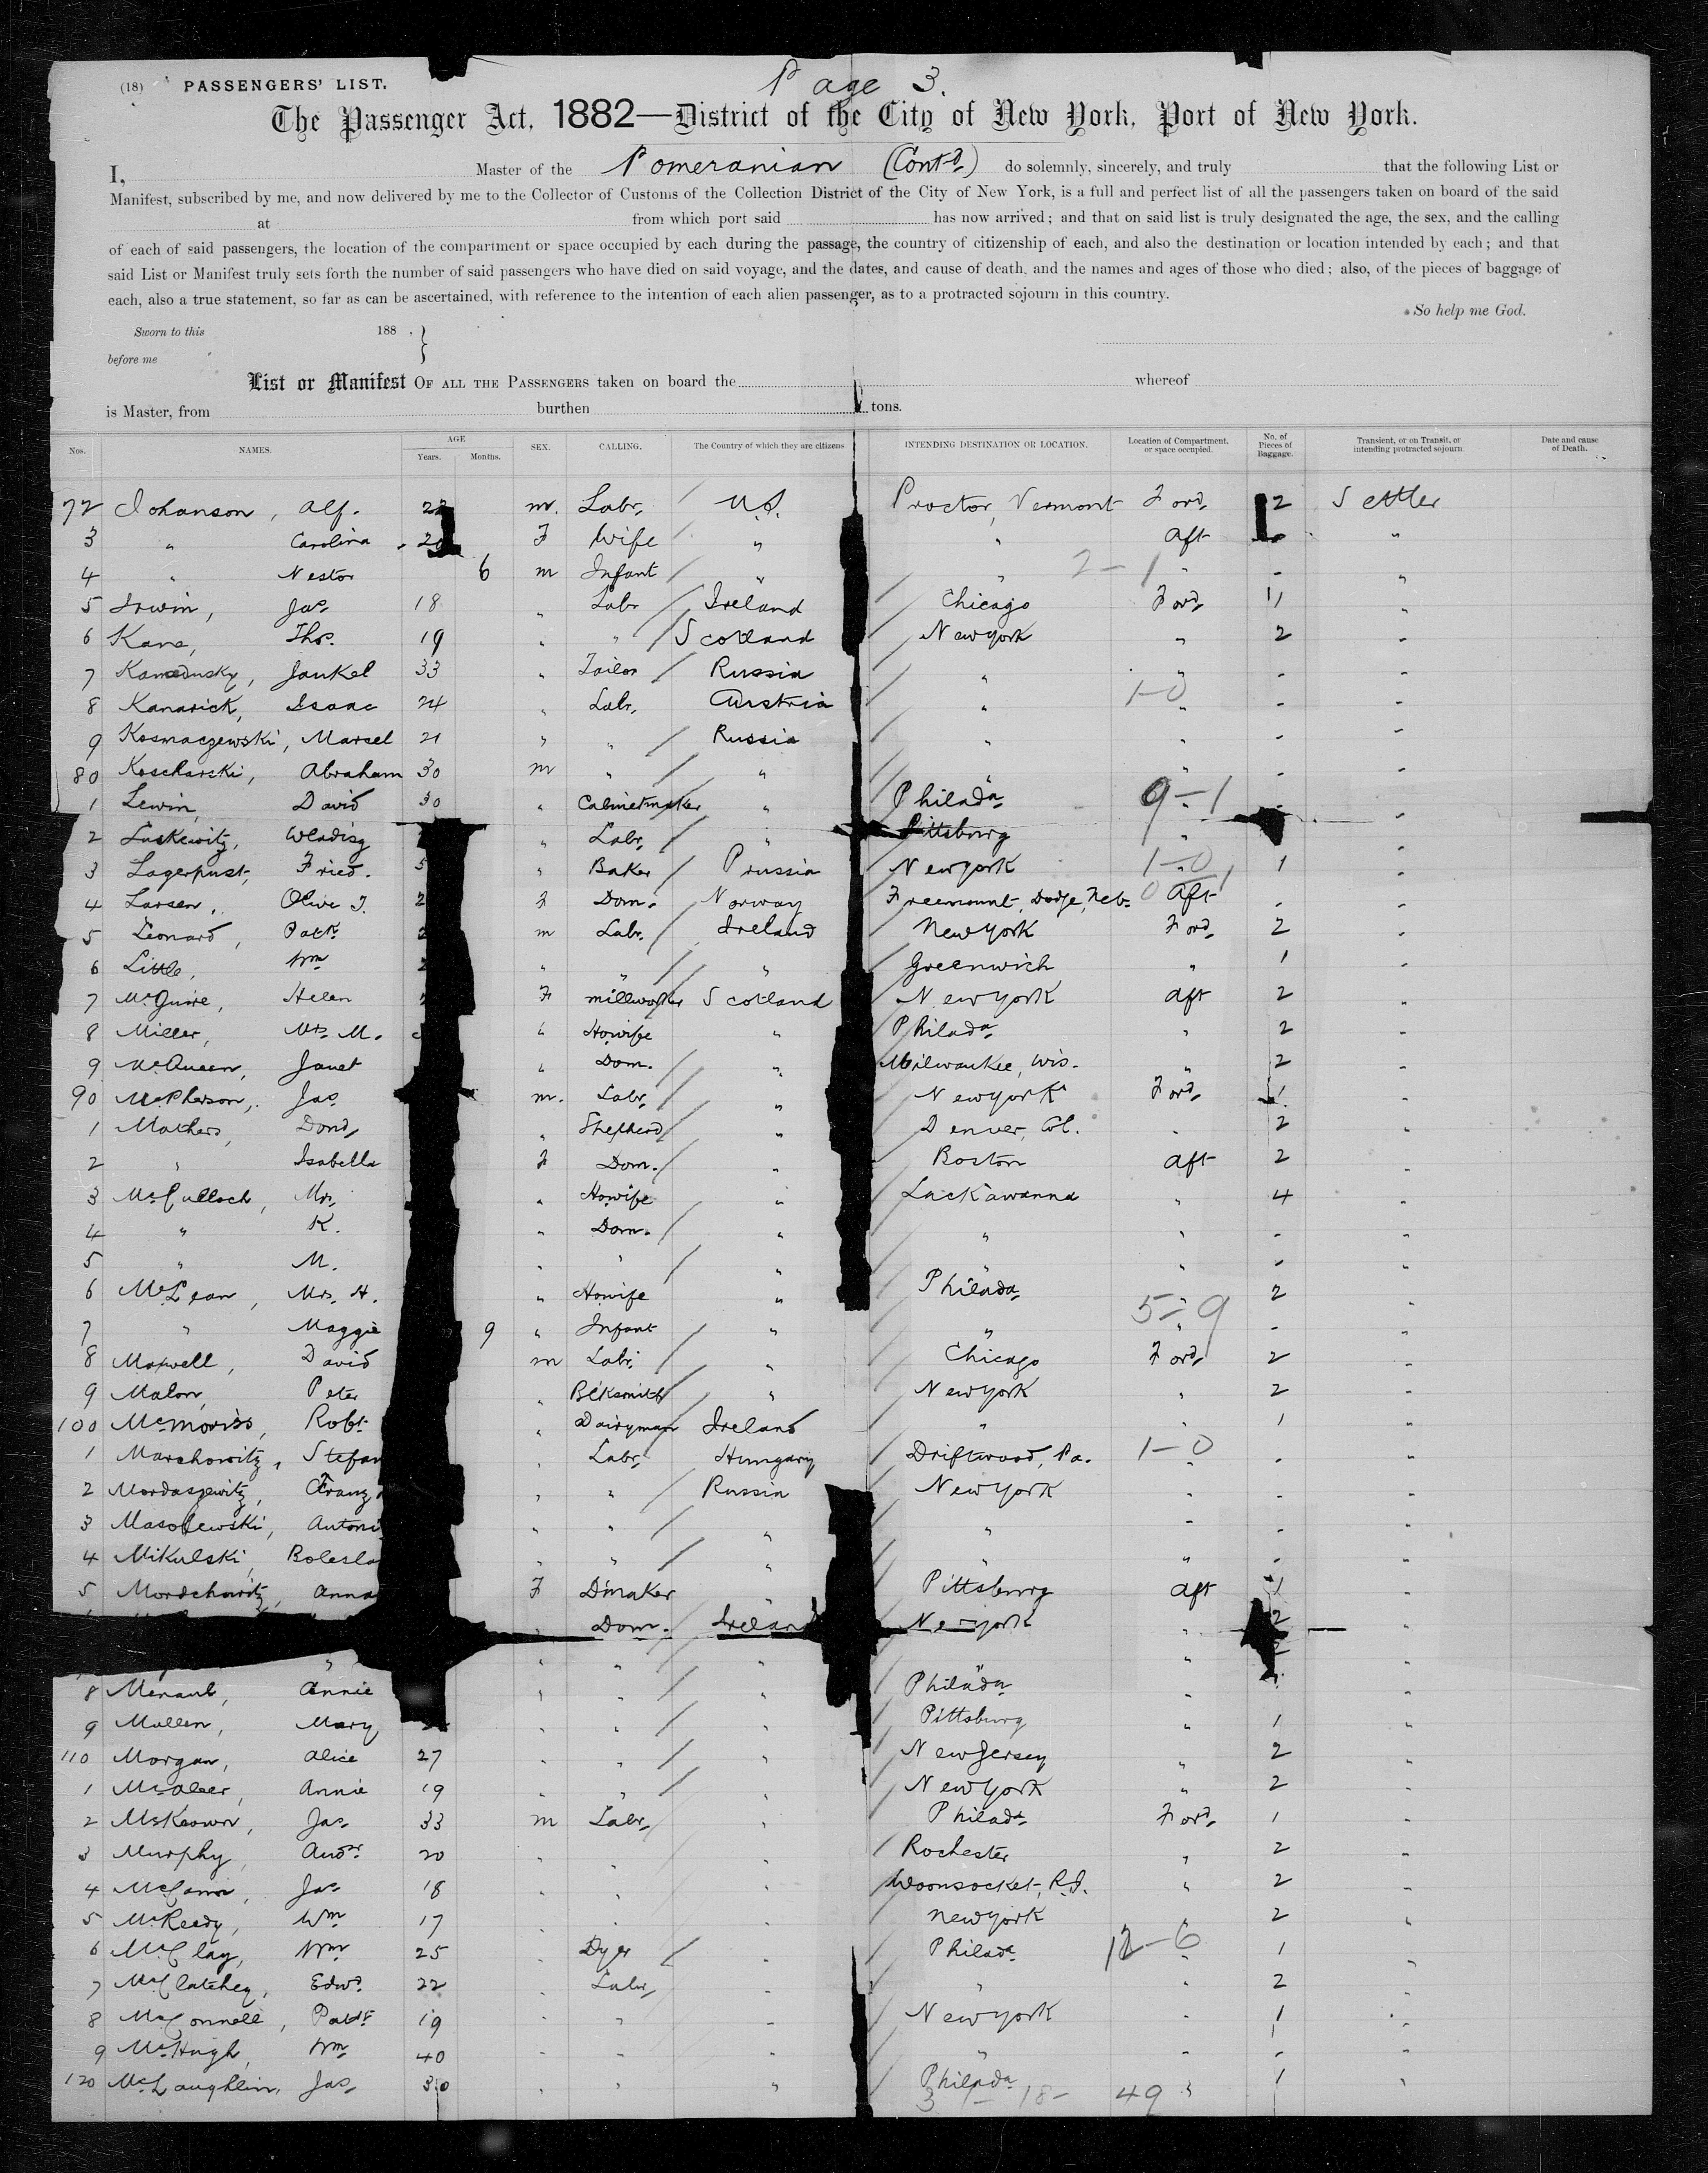 Page 3.
(18) PASSENGERS' LIST.
The Passenger Act, 1882—District of the City of New York, Port of New York.
I, Master of the Pomeranian (Contd.) do solemnly, sincerely, and truly that the following List or
Manifest, subscribed by me, and now delivered by me to the Collector of Customs of the Collection District of the City of New York, is a full and perfect list of all the passengers taken on board of the said
at from which port said has now arrived; and that on said list is truly designated the age, the sex, and the calling
of each of said passengers, the location of the compartment or space occupied by each during the passage, the country of citizenship of each, and also the destination or location intended by each; and that
said List or Manifest truly sets forth the number of said passengers who have died on said voyage, and the dates, and cause of death, and the names and ages of those who died; also, of the pieces of baggage of
each, also a true statement, so far as can be ascertained, with reference to the intention of each alien passenger, as to a protracted sojourn in this country.
So help me God.
Sworn to this 188 .
before me
List or Manifest OF ALL THE PASSENGERS taken on board the whereof
is Master, from burthen tons.
Nos. NAMES. AGE Years. Months. SEX. CALLING. The Country of which they are citizens INTENDING DESTINATION OR LOCATION. Location of Compartment, or space occupied. No. of Pieces of Baggage. Transient, or on Transit, or intending protracted sojourn. Date and cause of Death.
72 Johanson, Alf. m. Labr. U.S. Proctor, Vermont Ford. 2 Settler
3 " Carolina F Wife " " Aft - "
4 " Nestor 6 m Infant " " 2-1 " - "
5 Irwin, Jas. 18 " Labr / Ireland / Chicago Ford. 11 "
6 Kane, Thos. 19 " " / Scotland / New York " 2 "
7 Kamedusky, Jankel 33 " Tailor / Russia / " " - "
8 Kanarick, Isaac 24 " Labr. Austria / " 1-0 " - "
9 Kosmaczewski, Marcel 21 " " / Russia / " " - "
80 Koscharski, Abraham 30 m " / " / " " - "
1 Lewin, David 30 " Cabinetmaker " / Philada. 9-1 " - "
2 Luskewitz, Wladisg " Labr. " Pittsburg " "
3 Lagerpust, Fried. " Baker / Prussia / New York 1-0 " 1 "
4 Larsen, Olive J. F Dom. Norway / Freemount, Dodge, Neb. 0 1 Aft - "
5 Leonard, Patk. m Labr. / Ireland / New York Ford. 2 "
6 Little, Wm " " / " / Greenwich " 1 "
7 McGuire, Helen F millworker Scotland / New York Aft 2 "
8 Miller, Mrs. M. " Howife " / Philada. " 2 "
9 McQueen, Janet " Dom. / " Milwaukee, Wis. " 2 "
90 McPherson, Jas. m. Labr. / " / New York Ford. 1 "
1 Mathers, Dond. " Shepherd / " / Denver, Col. " 2 "
2 " Isabella F Dom. / " / Boston Aft 2 "
3 McCulloch, Mrs. " Howife " / Lackawanna " 4 "
4 " K. " Dom. / " / " " - "
5 " M. " " / " / " " - "
6 McLean, Mrs. H. " Howife " / Philada. " 2 "
7 " Maggie 9 " Infant / " / " 5-9 " - "
8 Maxwell, David m Labr. / " / Chicago Ford. 2 "
9 Malon, Peter " Blksmith / " / New York " 2 "
100 McMorriss, Robt. " Dairyman Ireland / " " 1 "
1 Marchowitz, Stefan " Labr. Hungary / Driftwood, Pa. 1-0 " - "
2 Mordaszewitz, Franz " " / Russia / New York " - "
3 Masolewski, Antoni " " / " / " " - "
4 Mikulski, Bolesla " " / " / " " - "
5 Mordchowitz, Anna F D'maker " / Pittsburg Aft 1 "
" Dom. Ireland New York " 2 "
" " " / " " "
8 Menaul, Annie " " / " / Philada. " "
9 Mullen, Mary " " / " / Pittsburg " 1 "
110 Morgan, Alice 27 " " / " / New Jersey " 2 "
1 McAleer, Annie 19 " " / / New York " 2 "
2 McKeown, Jas. 33 m Labr. " / Philada. Ford. 1 "
3 Murphy, Andr. 20 " " / Rochester " 2 "
4 McCann, Jas. 18 " " " / Woonsocket, R.I. " 2 "
5 McReedy, Wm 17 " " " / New York " 2 "
6 McClay, Wm 25 " Dyer / " / Philada. 12-6 " 1 "
7 McClatchey, Edwd. 22 " Labr. " / " " 2 "
8 McConnell, Patk. 19 " " " / New York " 1 "
9 McHugh, Wm 40 " " " / " " - "
120 McLaughlin, Jas. 30 " " " / Philada. " 1 "
3 18- 49